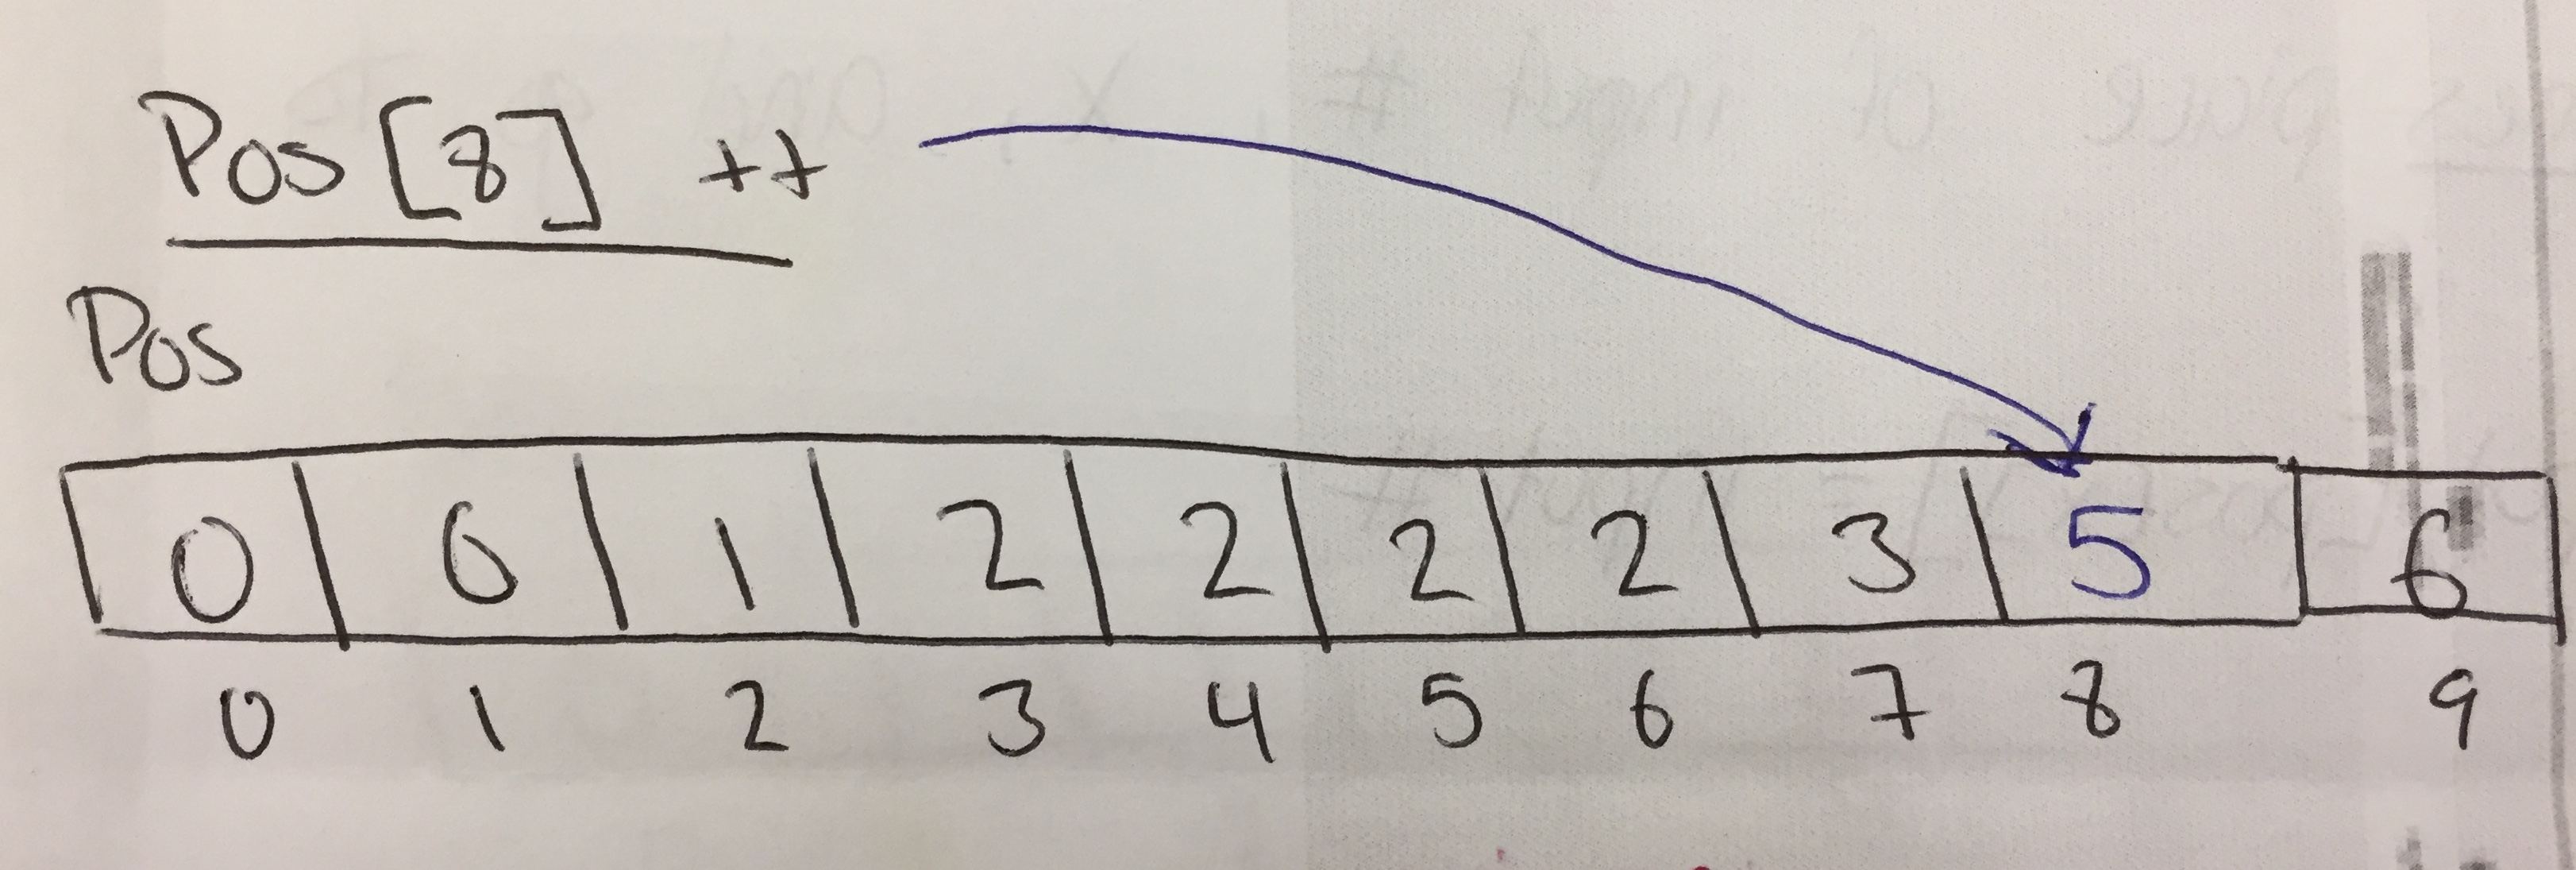 Pos [8] ++
Pos
0 0 1 2 2 2 2 3 5 6
0 1 2 3 4 5 6 7 8 9